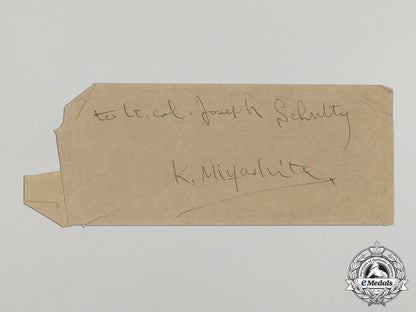 to Lt. Col. Joseph Schultz
K. Miyashita
eMedals